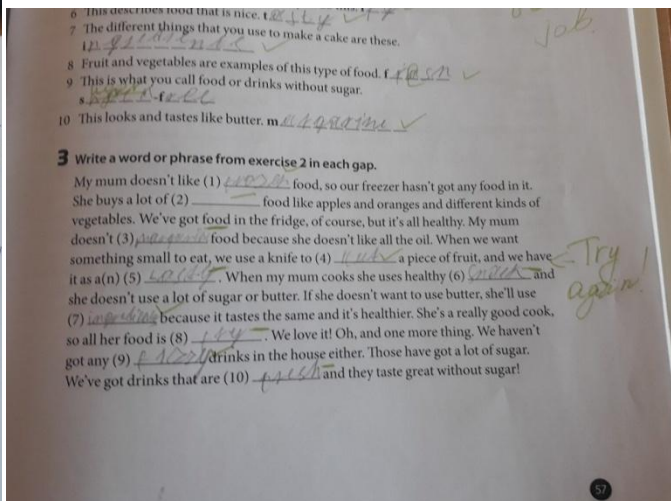 6 This describes food that is nice. t
job.
7 The different things that you use to make a cake are these.
i
8 Fruit and vegetables are examples of this type of food. fresh
9 This is what you call food or drinks without sugar.
s -free
10 This looks and tastes like butter. m
3 Write a word or phrase from exercise 2 in each gap.
My mum doesn't like (1) food, so our freezer hasn't got any food in it.
She buys a lot of (2) food like apples and oranges and different kinds of
vegetables. We've got food in the fridge, of course, but it's all healthy. My mum
doesn't (3) food because she doesn't like all the oil. When we want
something small to eat, we use a knife to (4) a piece of fruit, and we have
Try
it as a(n) (5) . When my mum cooks she uses healthy (6) snack and
again!
she doesn't use a lot of sugar or butter. If she doesn't want to use butter, she'll use
(7) because it tastes the same and it's healthier. She's a really good cook,
so all her food is (8) fry . We love it! Oh, and one more thing. We haven't
got any (9) drinks in the house either. Those have got a lot of sugar.
We've got drinks that are (10) fresh and they taste great without sugar!
57